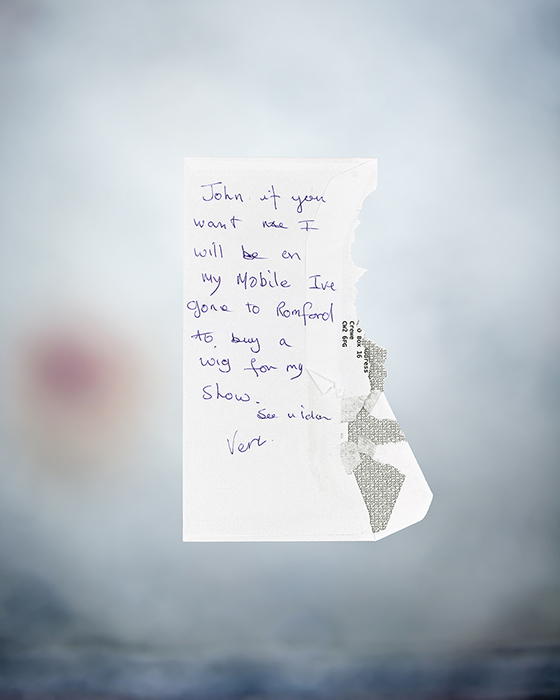 John if you
want me I
will be on
my Mobile Ive
gone to Romford
to. buy a
wig for my
Show.
See u
o Box 16
Crewe
CW2 6FG